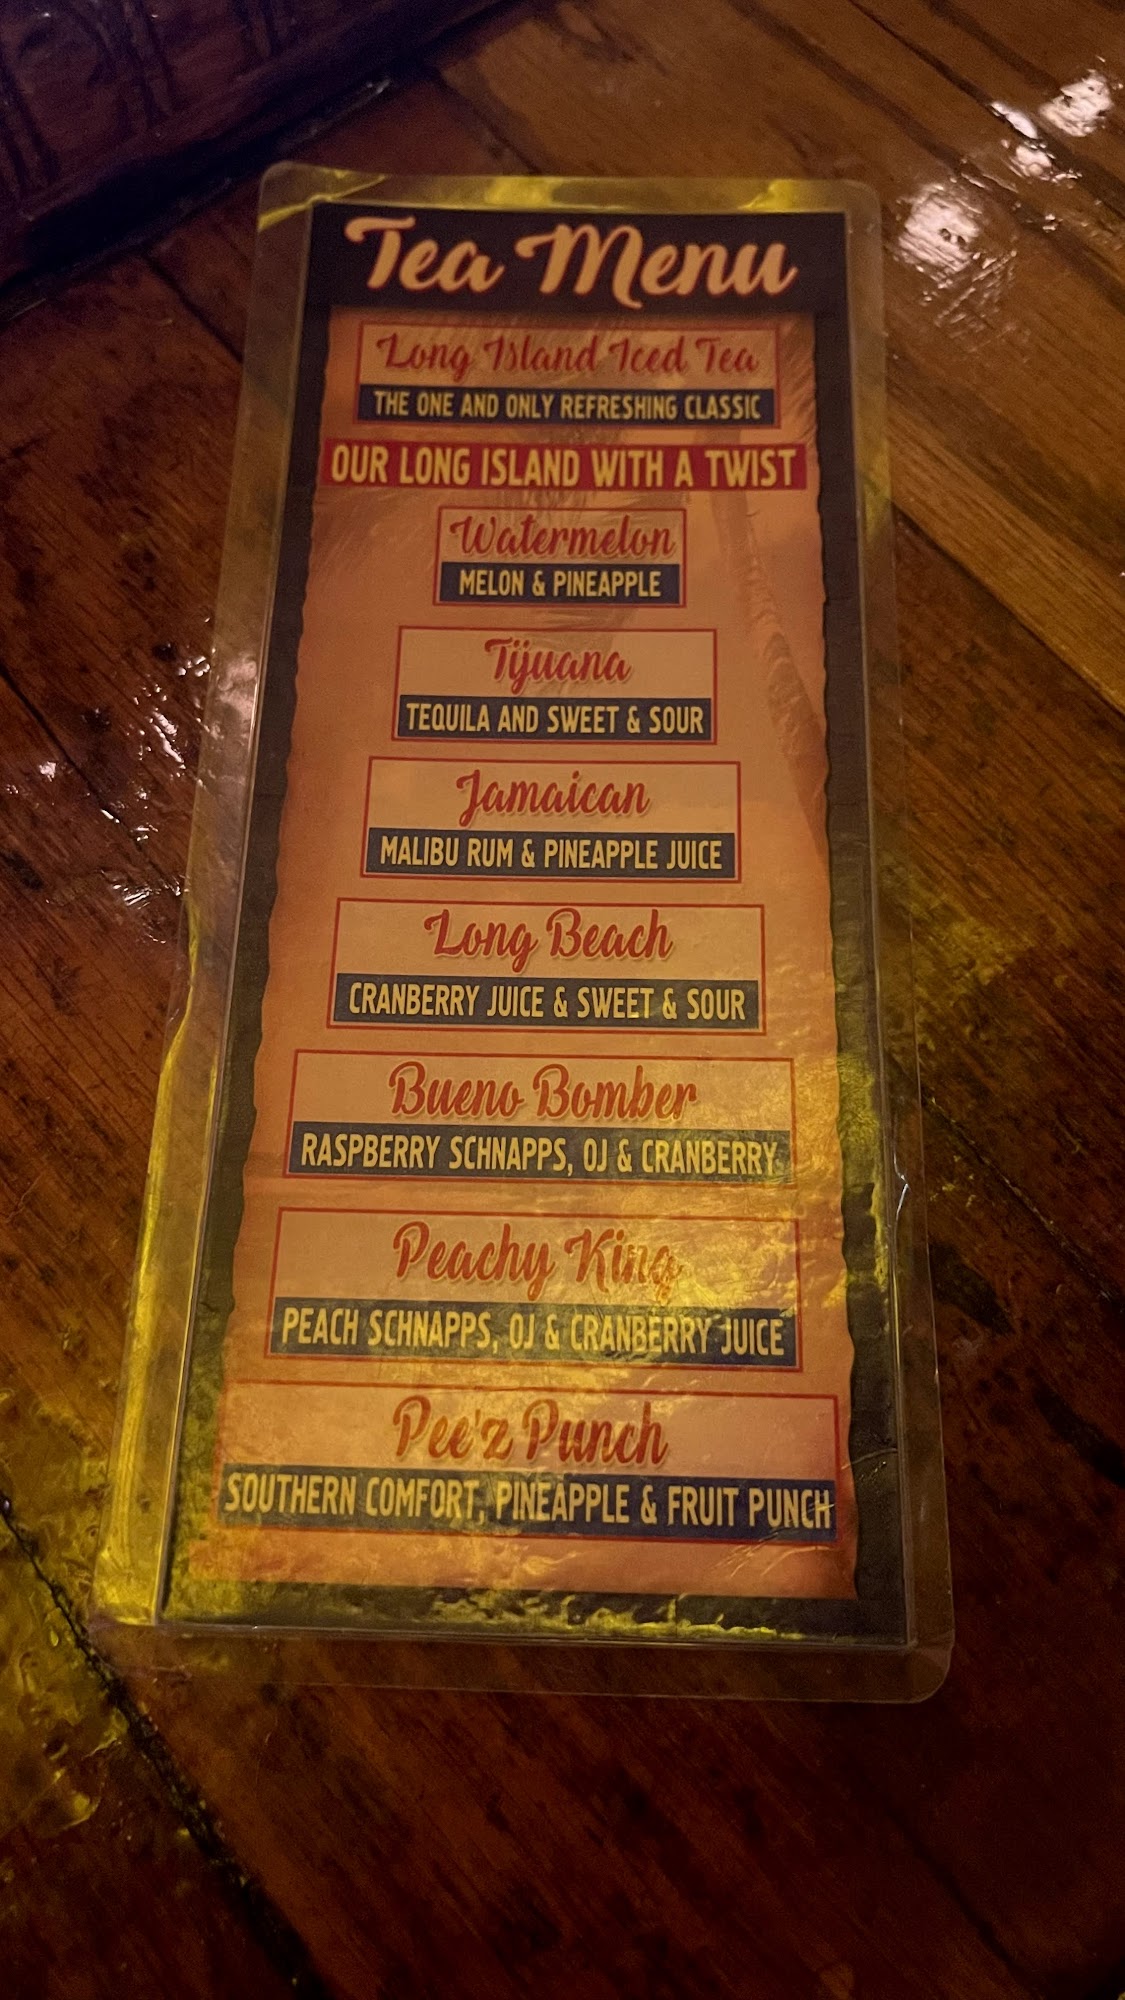 Tea Menu
Long Island Iced Tea
THE ONE AND ONLY REFRESHING CLASSIC
OUR LONG ISLAND WITH A TWIST
Watermelon
MELON & PINEAPPLE
Tijuana
TEQUILA AND SWEET & SOUR
Jamaican
MALIBU RUM & PINEAPPLE JUICE
Long Beach
CRANBERRY JUICE & SWEET & SOUR
Bueno Bomber
RASPBERRY SCHNAPPS, OJ & CRANBERRY
Peachy King
PEACH SCHNAPPS, OJ & CRANBERRY JUICE
Pee'z Punch
SOUTHERN COMFORT, PINEAPPLE & FRUIT PUNCH